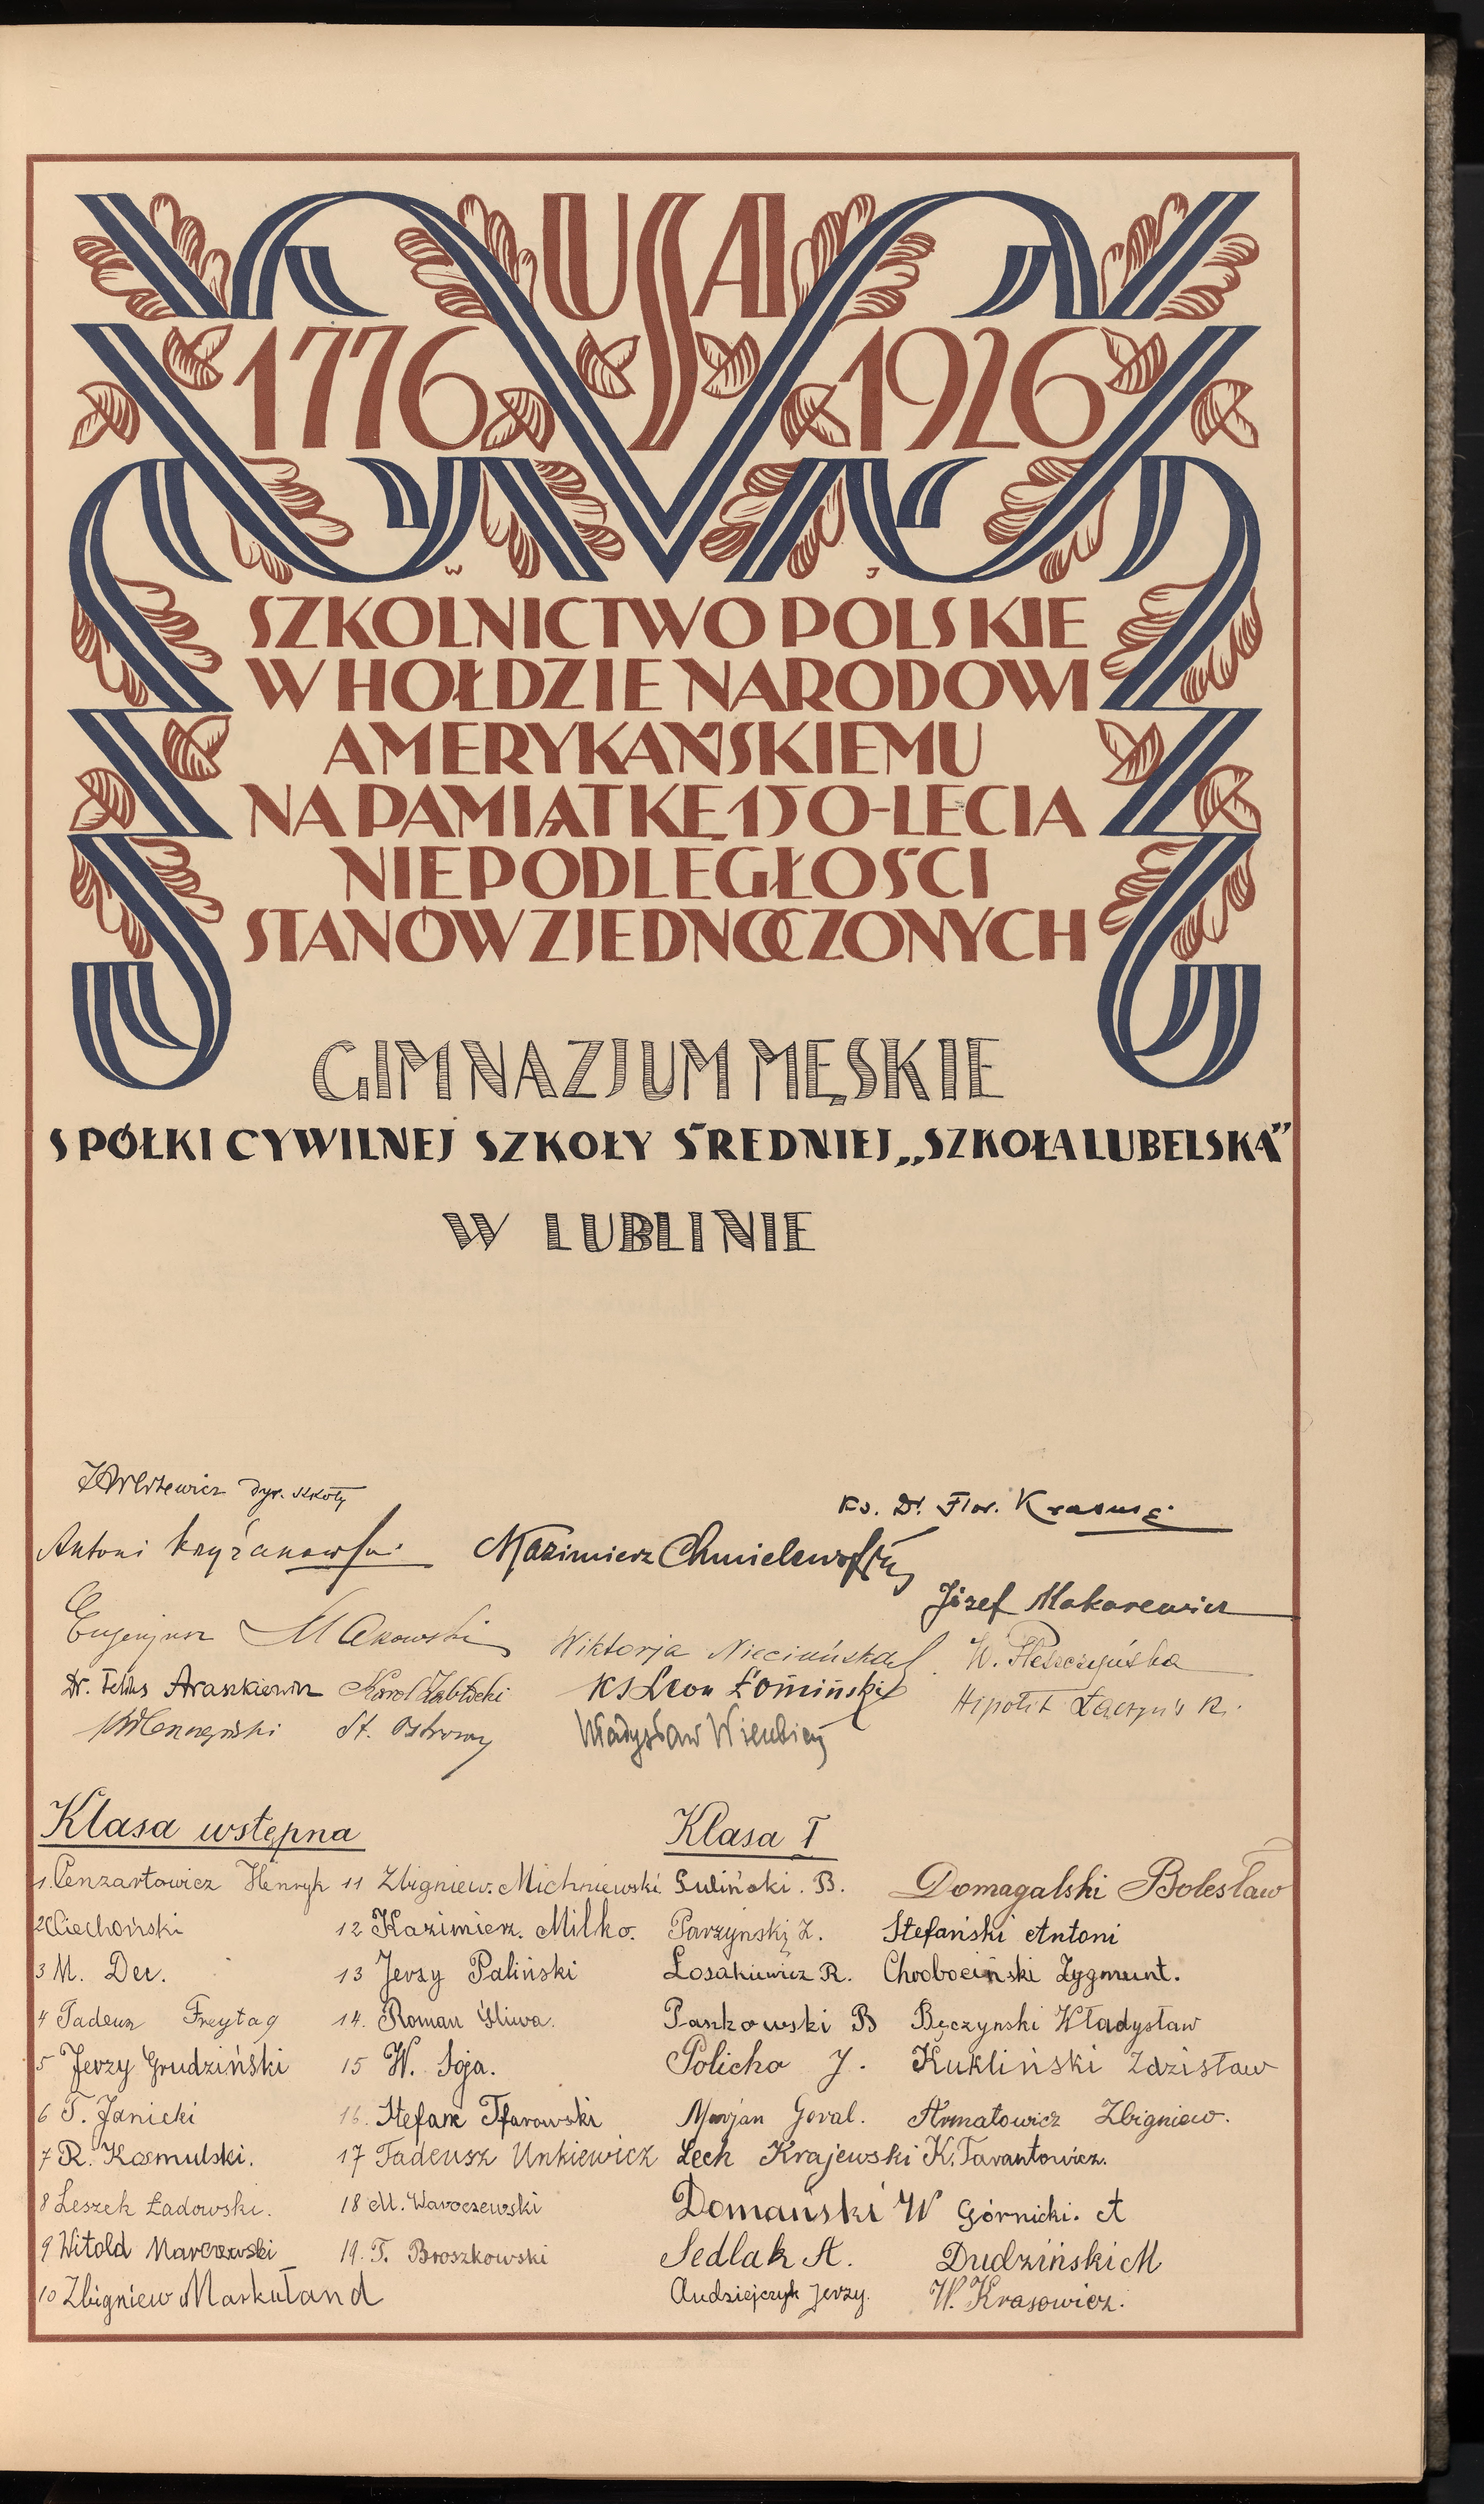 USA
1776 1926
W J
SZKOLNICTWO POLSKIE
W HOŁDZIE NARODOWI
AMERYKAŃSKIEMU
NA PAMIĄTKĘ 150-LECIA
NIEPODLEGŁOŚCI
STANÓW ZJEDNOCZONYCH
GIMNAZJUM MĘSKIE
SPÓŁKI CYWILNEJ SZKOŁY ŚREDNIEJ „SZKOŁA LUBELSKA”
W LUBLINIE
dyr. szkoły
Ks. Dr. Flor. Krasuski
Antoni Krzyżanowski
Kazimierz Chmielewski
Józef Makarewicz
Eugenjusz Makowski
Wiktorja Niecińska
W. Pleszczyńska
Dr. Feliks Araszkiewicz Karol Żabłocki
Ks Leon Łomiński
Hipolit Łączyński
St. Ostrowy
Władysław
Klasa wstępna
1. Cenzartowicz Henryk
2 Ciechoński
3 M. Dec.
4 Tadeusz Freytag
5 Jerzy Grudziński
6 T. Janicki
7 R. Kosmulski.
8 Leszek Ładowski.
9 Witold Marczewski
10 Zbigniew Markuland
11 Zbigniew. Michniewski
12 Kazimierz. Milko.
13 Jerzy Paliński
14. Roman Śliwa.
15 W. Soja.
16. Stefan Tfarowski
17 Tadeusz Unkiewicz
18 M. Waroczewski
19. T. Broszkowski
Klasa I
Suliński. B.
Parzyński Z.
Łosakiewicz R.
Paszkowski B
Policha J.
Marjan Goral.
Lech Krajewski
Domański W
Sedlak A.
Andziejczyk Jerzy.
Domagalski Bolesław
Stefański Antoni
Chrobociński Zygmunt.
Bęczynski Władysław
Kukliński Zdzisław
Armatowicz Zbigniew.
K. Tarantowicz.
Górnicki. A
Dudziński M
W. Krasowicz.